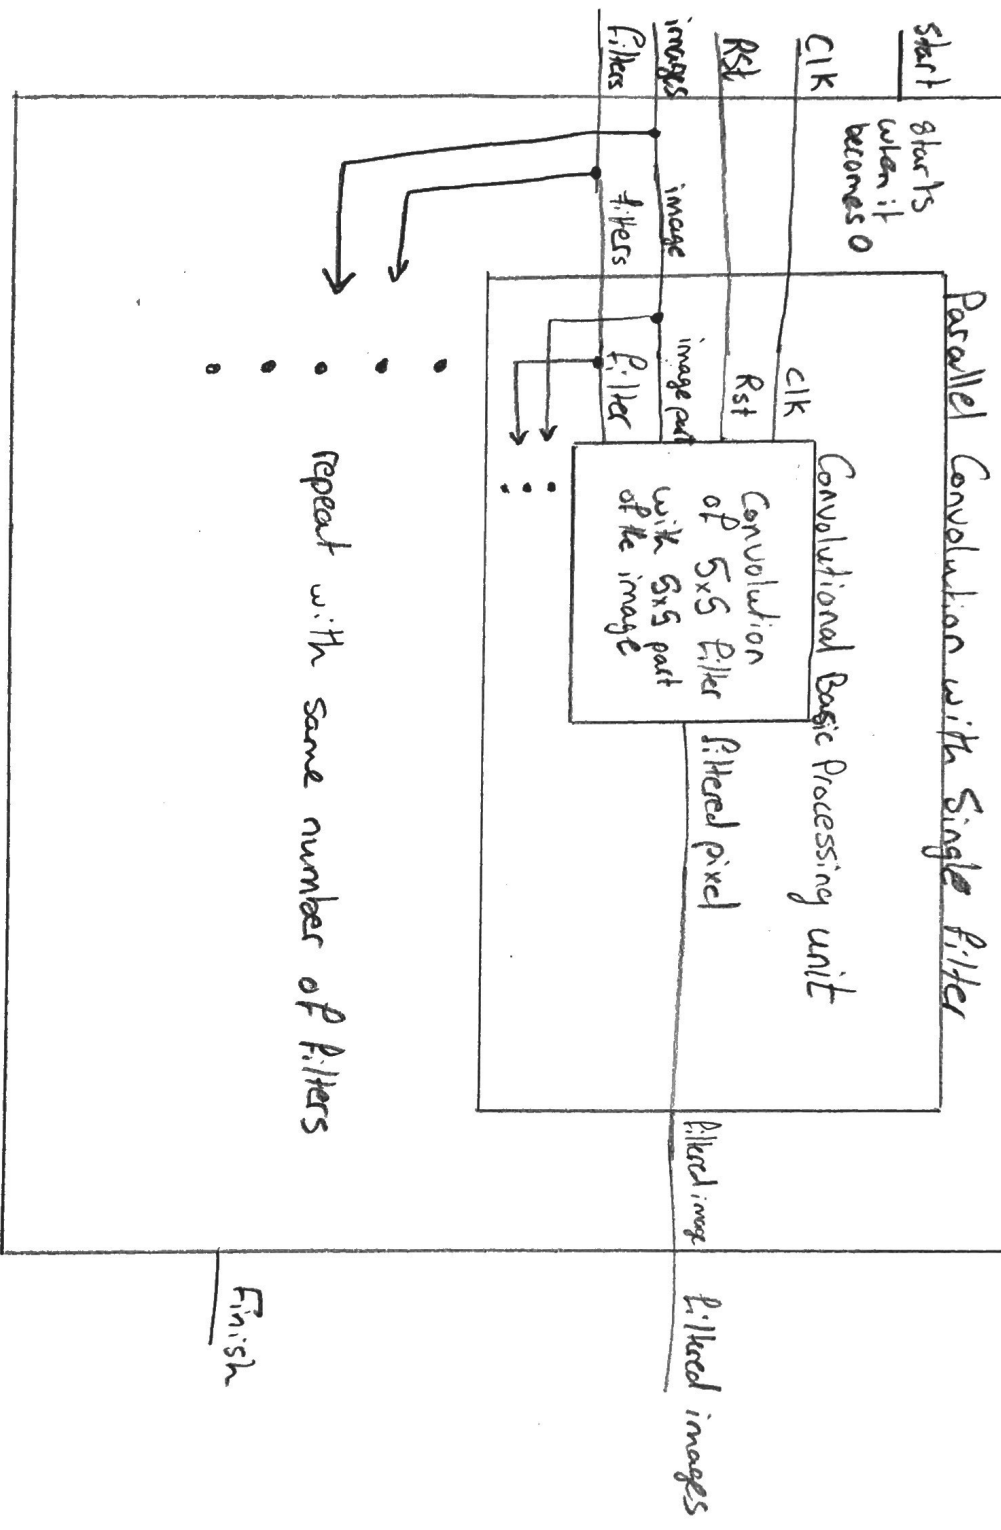 Start
starts
when it
becomes 0
Clk
Rst
images
filters
image
filters
Parallel Convolution with Single filter
Clk
Rst
image part
filter
Convolutional Basic Processing unit
Convolution
of 5x5 filter
with 5x5 part
of the image
filtered pixel
filtered image
filtered images
repeat with same number of filters
Finish